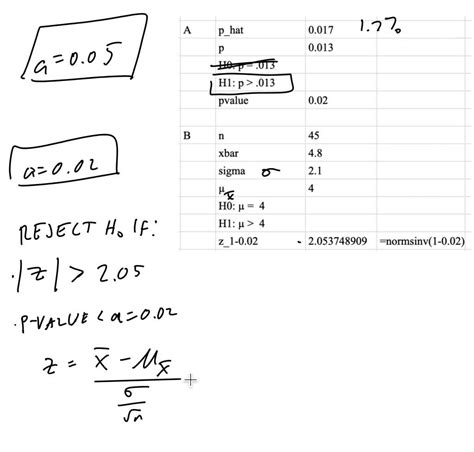 a=0.05
a=0.02
REJECT H₀ IF:
·|z| > 2.05
·P-VALUE < a=0.02
z = x̄ - μx̄ / σ/√n
A p_hat 0.017 1.7%
p 0.013
H0: p = .013
H1: p > .013
pvalue 0.02
B n 45
xbar 4.8
sigma σ 2.1
μx̄ 4
H0: μ = 4
H1: μ > 4
z_1-0.02 - 2.053748909 =normsinv(1-0.02)